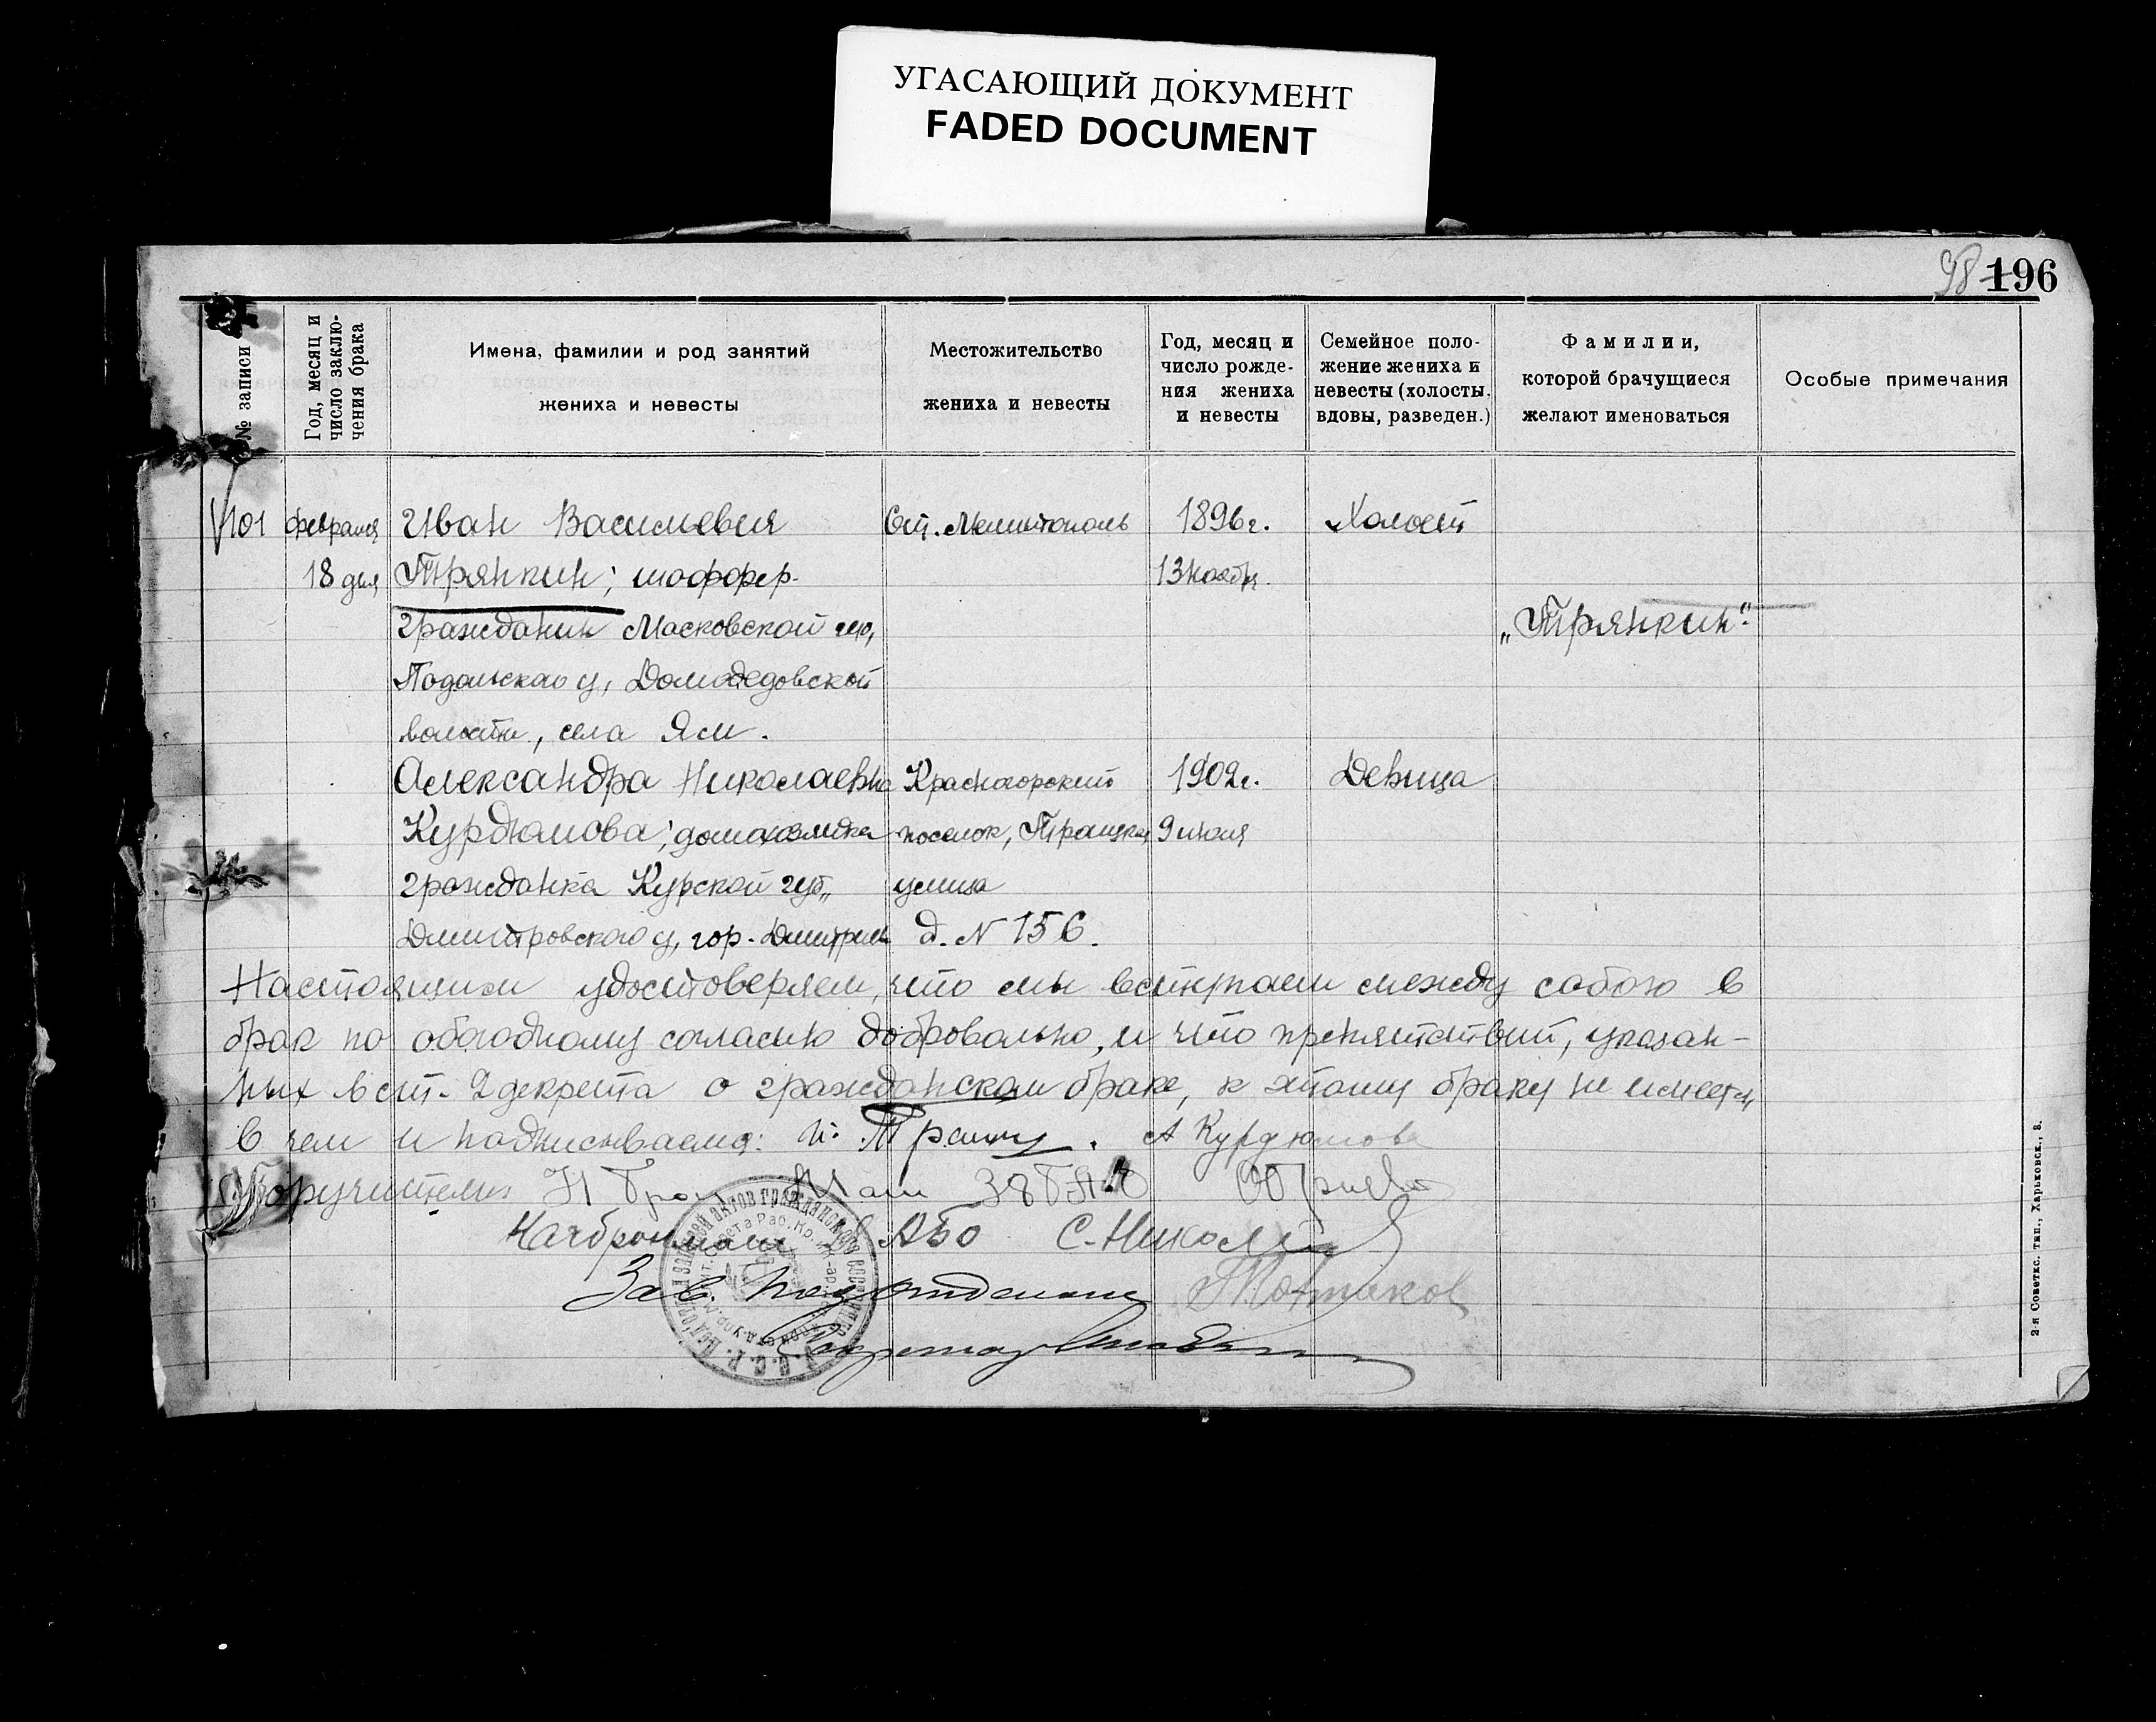 УГАСАЮЩИЙ ДОКУМЕНТ
FADED DOCUMENT
98 196
№ записи
Год, месяц и
число заклю-
чения брака
Имена, фамилии и род занятий
жениха и невесты
Местожительство
жениха и невесты
Год, месяц и
число рожде-
ния жениха
и невесты
Семейное поло-
жение жениха и
невесты (холосты,
вдовы, разведен.)
Фамилии,
которой брачущиеся
желают именоваться
Особые примечания
101 февраля Иван Васильевич Ст. Мелитополь 1896г. Холост
18 дня Трянкин; шоффер 13 ноября.
гражданин Московской губ, „Трянкин".
Подольскаго у, Домодедовской
волости, села Ям.
Александра Николаевна Красногорский 1902г. Девица
Курдюмова; домохозяйка поселок, Троцкая 9 июля
гражданка Курской губ., улица
Дмитровского у, гор. Дмитриев д. N 156.
Настоящим удостоверяем, что мы вступаем между собою в
брак по обоюдному согласию добровольно, и что препятствий, указан-
ных в ст. 2 декрета о гражданском браке, к этому браку не имеется,
в чем и подписываемся: И. А Курдюмова
Поручители
С. Николай
Зав. подотделом
Секретарь
2-я Советск. тип., Харьковск., 8.